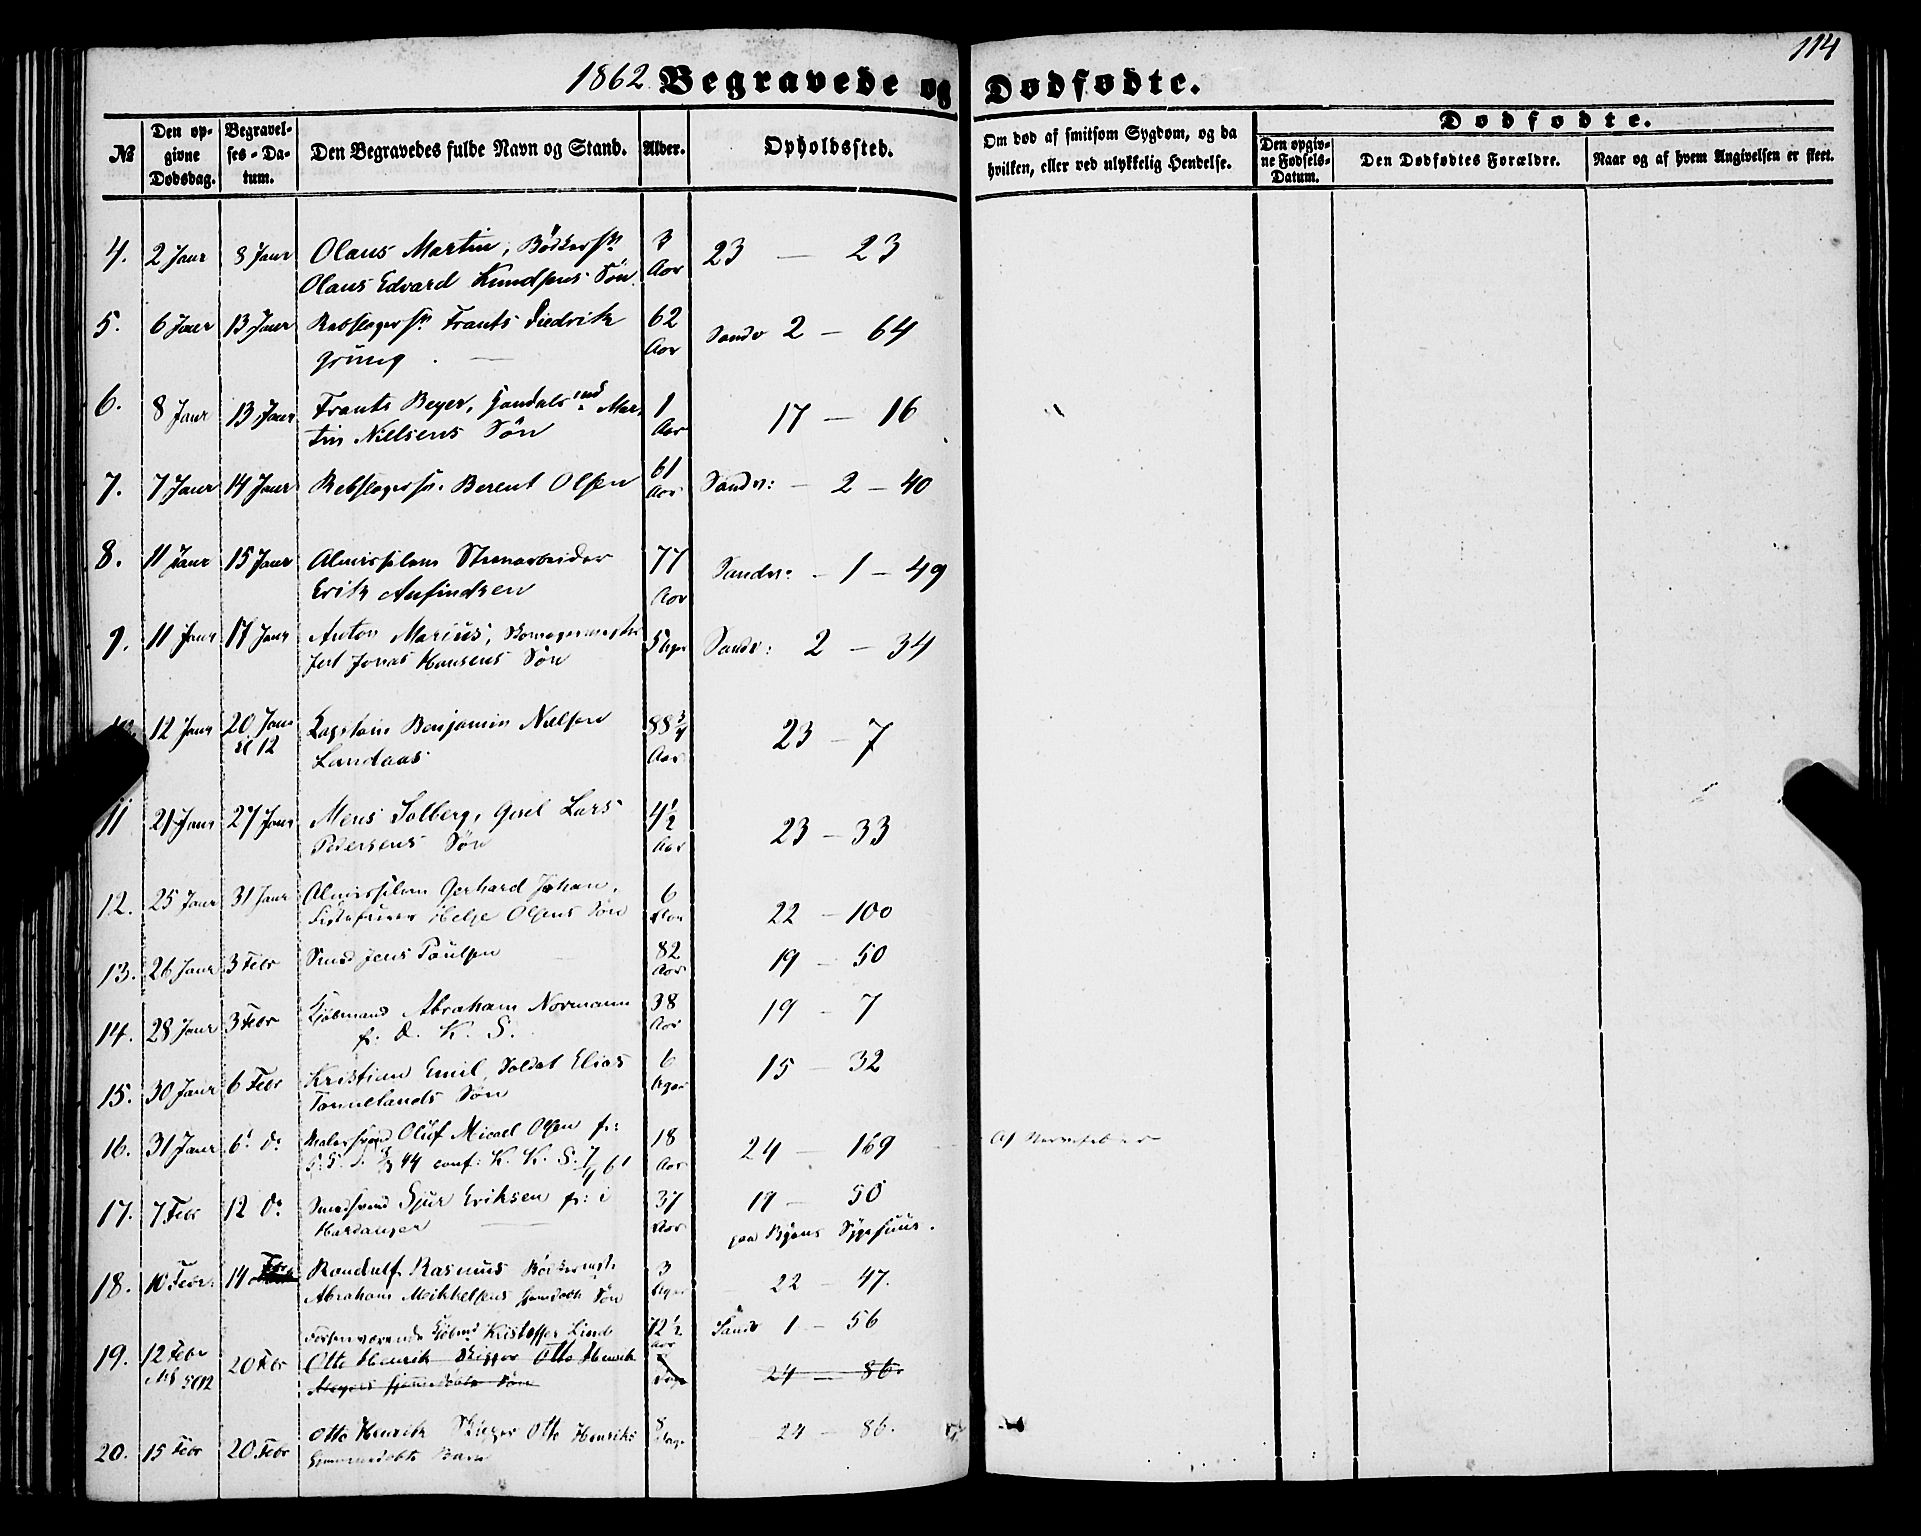 114
1862 Begravede og Dødfødte.
№ Den opgivne Dødsdag. Begravelses-Datum. Den Begravedes fulde Navn og Stand. Alder. Opholdssted. Om død af smitsom Sygdom, og da hvilken, eller ved ulykkelig Hendelse. Dødfødte. Den opgivne Fødsels-Datum. Den Dødfødtes Forældre. Naar og af hvem Angivelsen er skeet.
4. 2 Janr 8 Janr Olaus Martin, 3 23 — 23
Olaus Edvard Knudsens Søn Aar
5. 6 Janr 13 Janr Rebslagersv Frants Diedrik 62 Sandv 2 — 64
Grung Aar
6. 8 Janr 13 Janr Frants Beyer, Mar- 1 17 — 16
tin Nielsens Søn Aar
7. 7 Janr 14 Janr Berent Olsen 61 Aar Sandv: — 2 — 40
8. 11 Janr 15 Janr Almisselem Steenarbeider 77 Sandv: — 1 — 49
Erik Anfindsen Aar
9. 11 Janr 17 Janr Anton Marius, 5 Uger Sandv: 2 — 34
Jonas Hansens Søn
12 Janr 20 Janr Benjamin Nielsen 88 3/4 23 — 7
kl 12 Landaas Aar
11 21 Janr 27 Janr Mons Solberg, Lars 4 1/2 23 — 33
Pedersens Søn Aar
12. 25 Janr 31 Janr Almisselem Gerhard Johan, 6 22 — 100
Helje Olsens Søn Aar
13. 26 Janr 3 Febr Smed Jens Paulsen 82 Aar 19 — 50
14. 28 Janr 3 Febr Kjøbmand Abraham Normann 38 19 — 7
f. D. K. S. Aar
15. 30 Janr 6 Febr Kristian Emil, Soldat Elias 6 15 — 32
Søn Uger
16. 31 Janr 6. do Malersvend Oluf Micael Olsen f: 18 24 — 169
44 conf: K. K. S. 61 Aar
17. 7 Febr 12 do Smedsvend Sjur Eriksen f: i 37 19 — 50
Hardanger Aar paa Byens Sygehuus.
18. 10 Febr. 14 Febr Rasmus 3 22 — 47.
Abraham Mikkelsens Søn Uger
19. 12 Febr 20 Febr Forhenværende Kjøbmd Kristoffer Lind 72 1/2 Aar Sandv 1 — 56
Otto Henrik Skipper Otto Henrik 24 — 86.
Meyers Søn
20. 15 Febr 20 Febr Otto Henrik Otto Henriks 8 Dage 24 — 86.
Barn